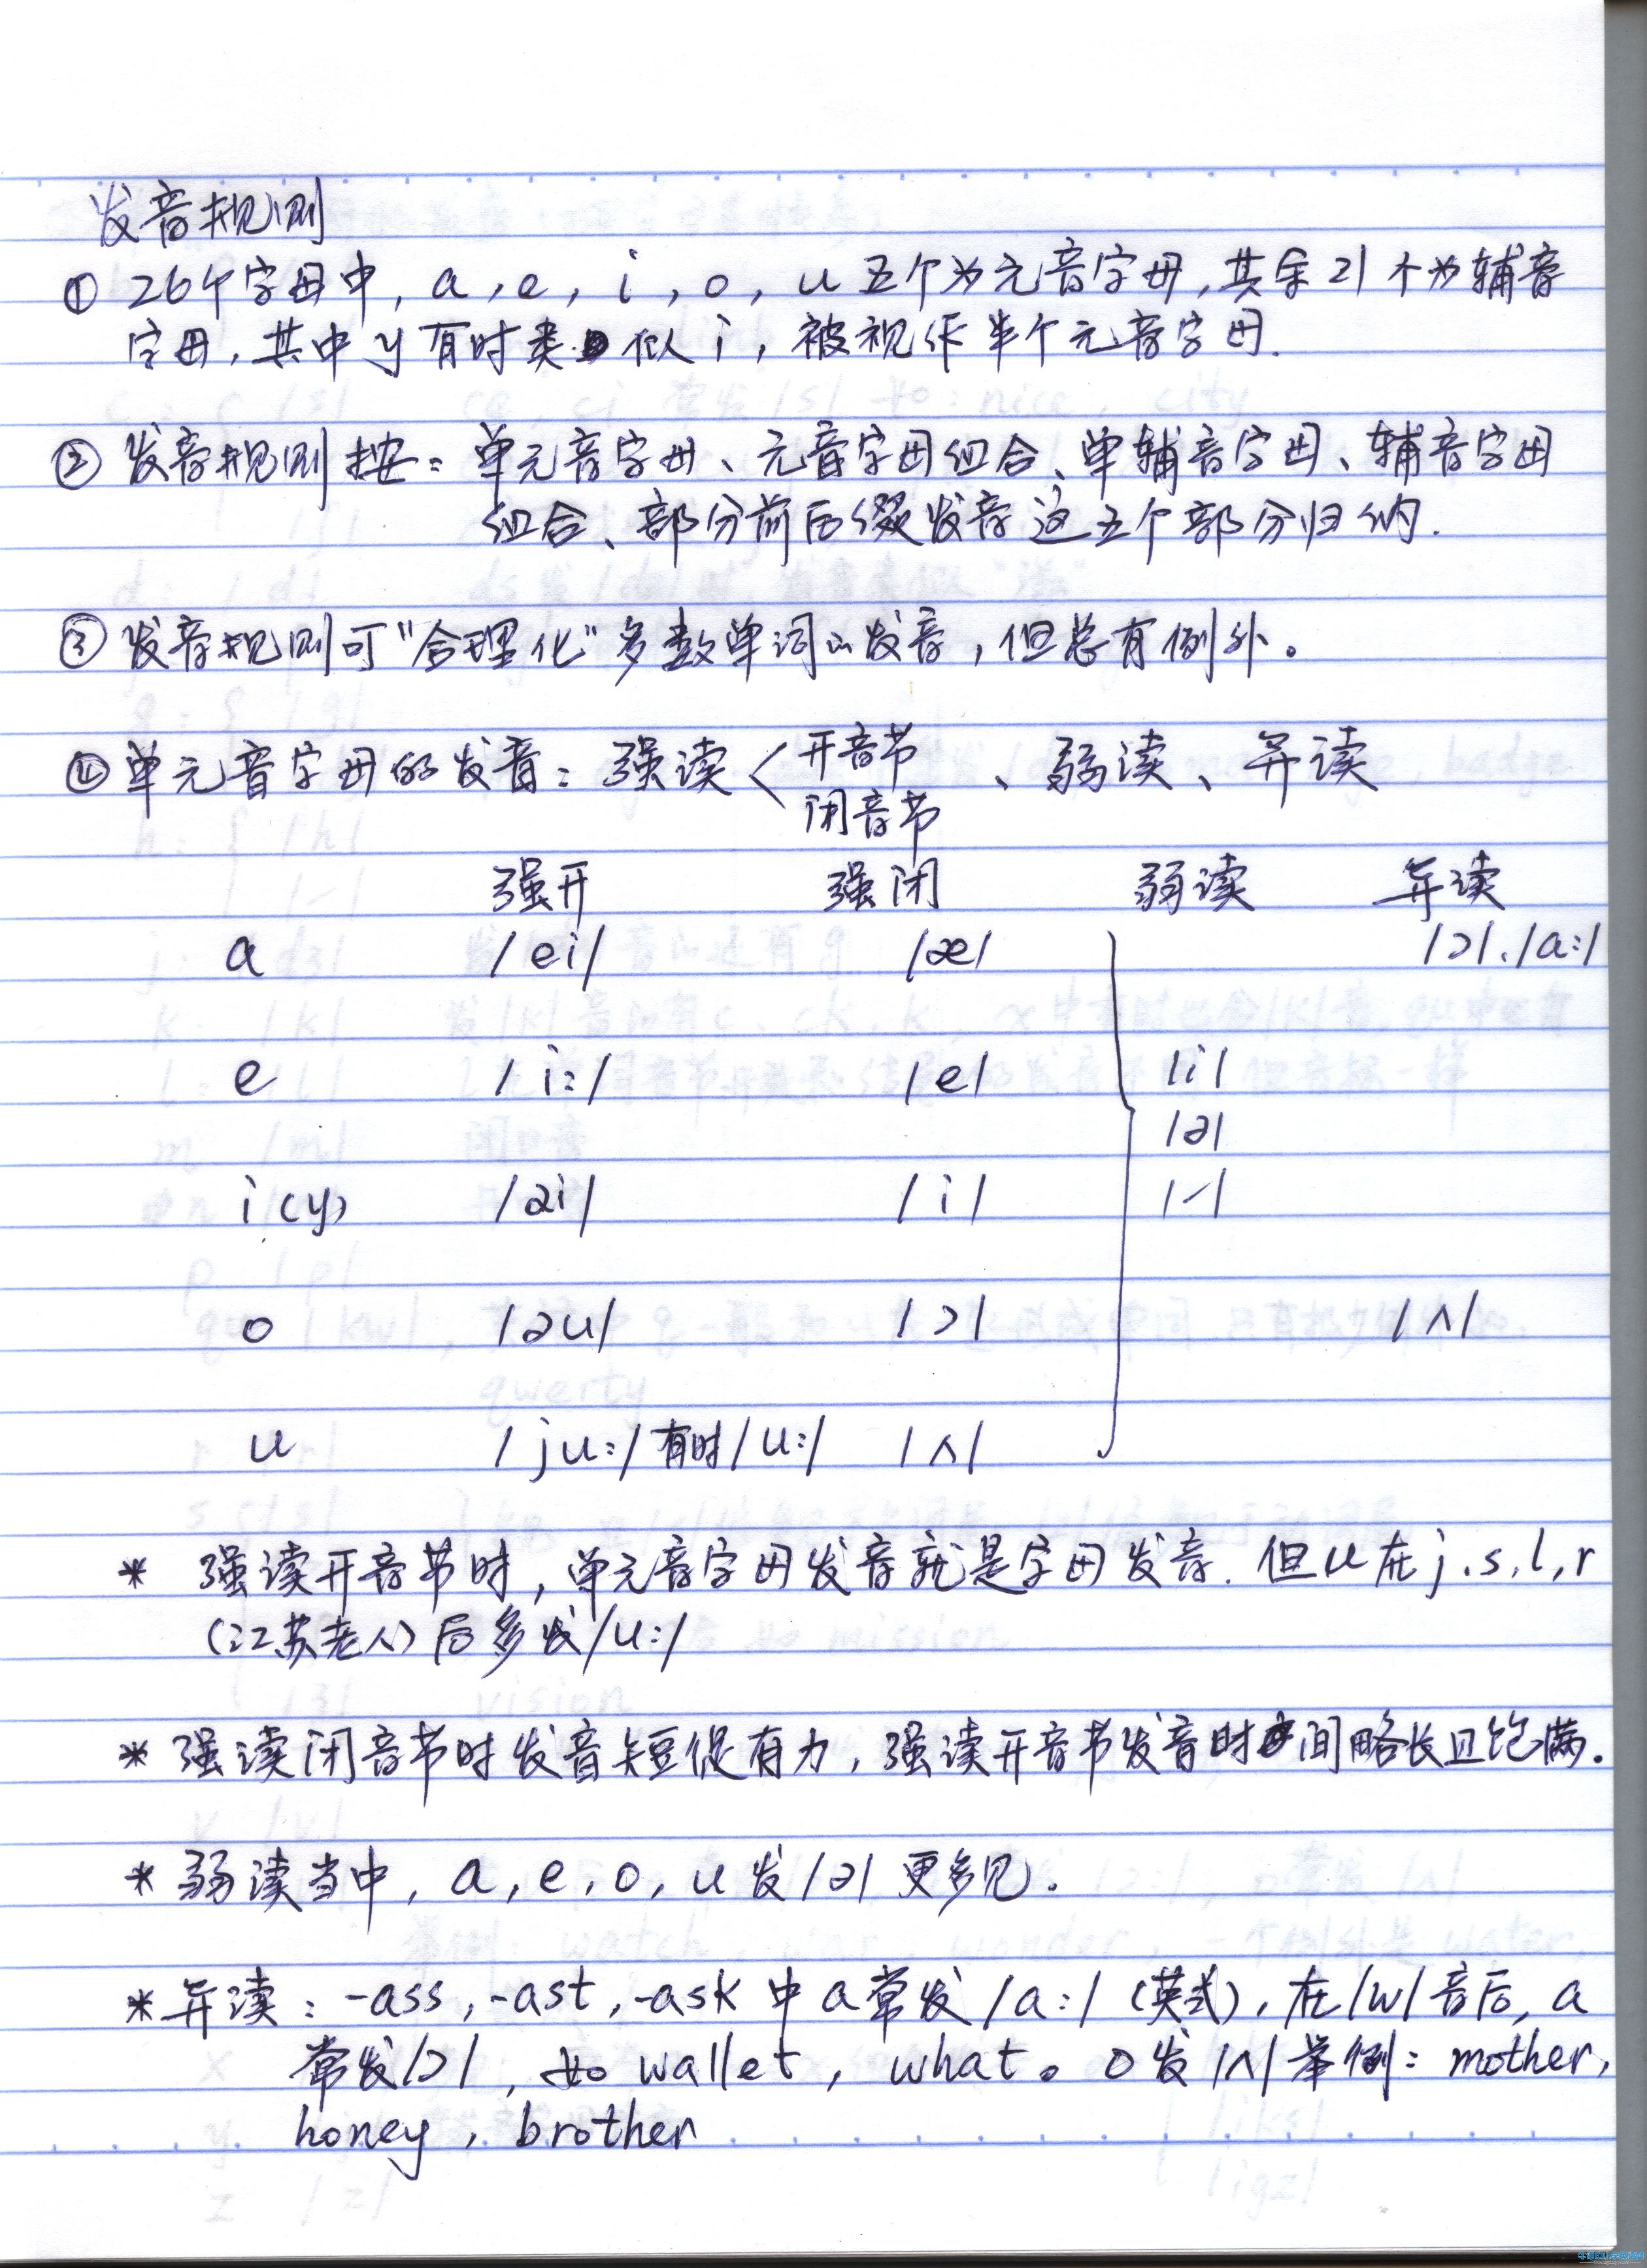 发音规则
① 26个字母中, a, e, i, o, u 五个为元音字母, 其余21个为辅音
字母, 其中y有时类似i, 被视作半个元音字母.
② 发音规则按: 单元音字母、元音字母组合、单辅音字母、辅音字母
组合、部分前后缀发音这五个部分归纳.
③ 发音规则可"合理化"多数单词的发音, 但总有例外。
④ 单元音字母的发音: 强读< 开音节 、弱读、异读
闭音节
强开 强闭 弱读 异读
a /ei/ /æ/ /ɔ/. /a:/
e /i:/ /e/ /i/
/ə/
i(y) /ai/ /i/ /-/
o /əu/ /ɔ/ /ʌ/
u /ju:/ 有时/u:/ /ʌ/
* 强读开音节时, 单元音字母发音就是字母发音. 但u在j.s,l,r
(江苏老人)后多发/u:/
* 强读闭音节时发音短促有力, 强读开音节发音时间略长且饱满.
* 弱读当中, a, e, o, u发/ə/更多见.
* 异读: -ass, -ast, -ask 中a常发/a:/ (英式), 在/w/音后, a
常发/ɔ/, 如 wallet, what。o发/ʌ/举例: mother,
honey, brother